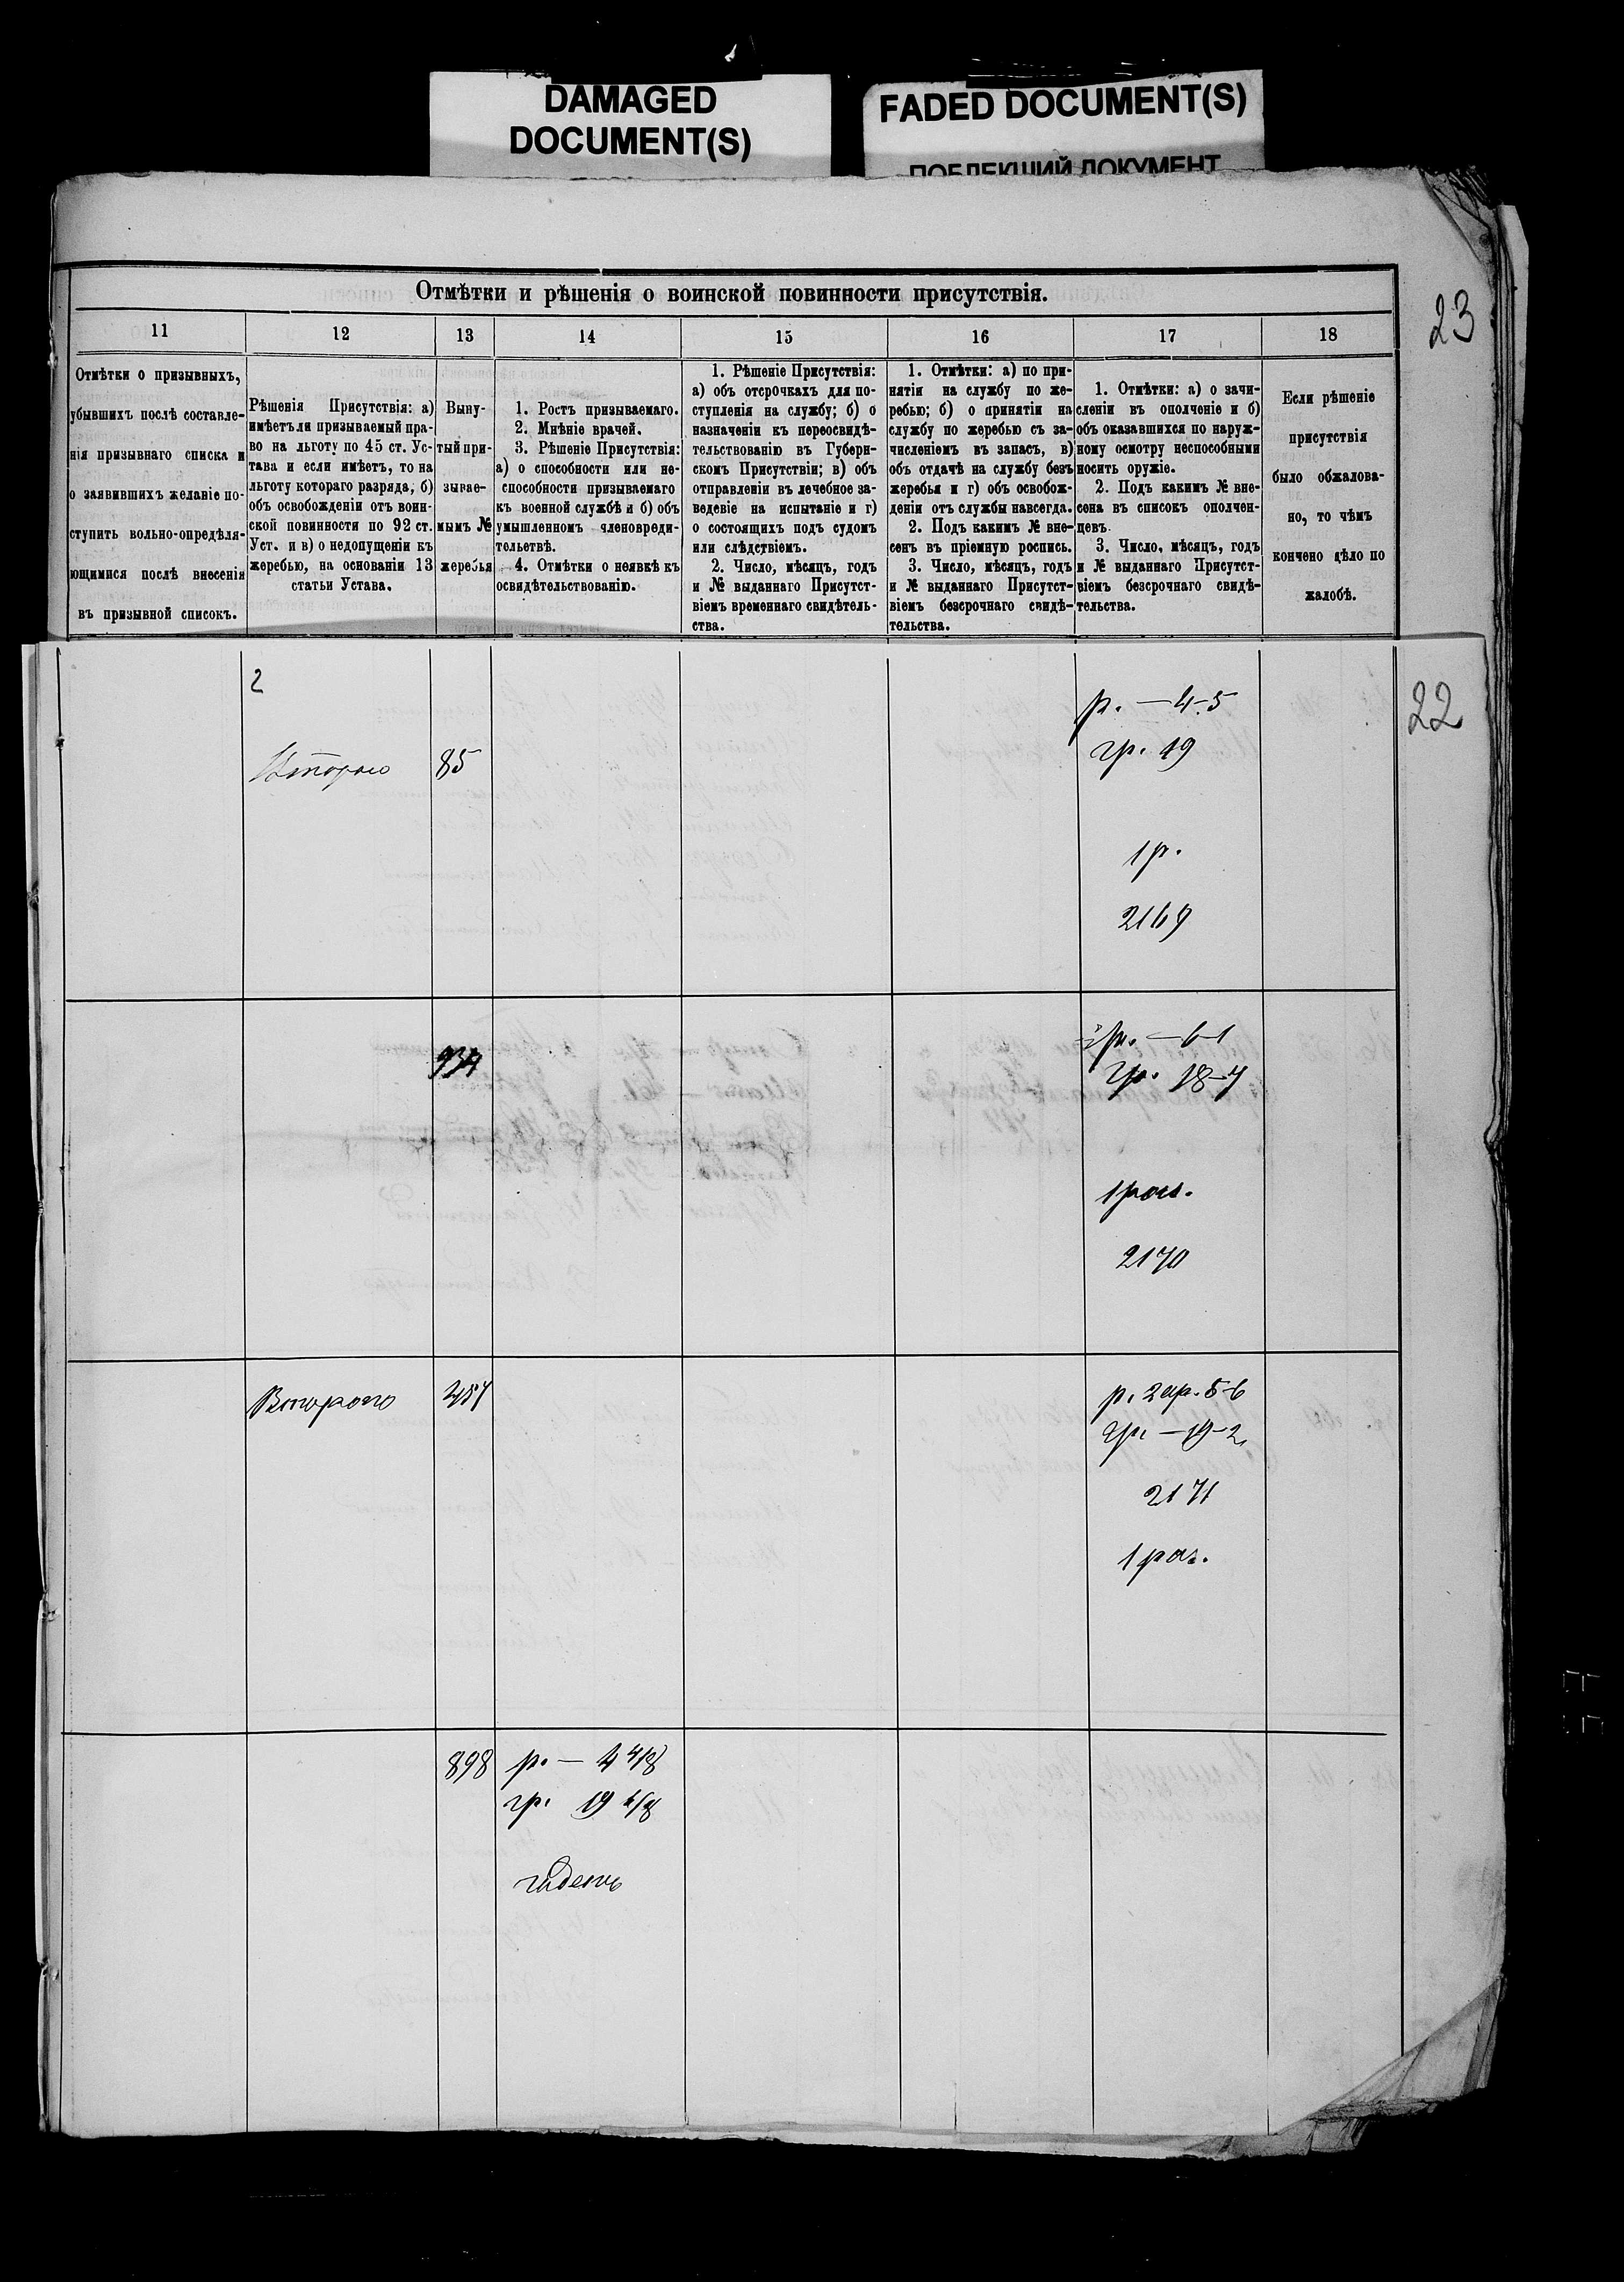 DAMAGED
DOCUMENT(S)
FADED DOCUMENT(S)
ПОБЛЕКШИЙ ДОКУМЕНТ
Отмѣтки и рѣшенія о воинской повинности присутствія.
23
11
12
13
14
15
16
17
18
Отмѣтки о призывныхъ,
убывшихъ послѣ составле-
нія призывнаго списка и
о заявившихъ желаніе по-
ступить вольно-опредѣля-
ющимися послѣ внесенія
въ призывной списокъ.
Рѣшенія Присутствія: а)
имѣетъ ли призываемый пра-
во на льготу по 45 ст. Ус-
тава и если имѣетъ, то на
льготу котораго разряда; б)
объ освобожденіи отъ воин-
ской повинности по 92 ст.
Уст. и в) о недопущеніи къ
жеребью, на основаніи 13
статьи Устава.
Выну-
тый при-
зывае-
мымъ №
жеребья
1. Ростъ призываемаго.
2. Мнѣніе врачей.
3. Рѣшеніе Присутствія:
а) о способности или не-
способности призываемаго
къ военной службѣ и б) объ
умышленномъ членовреди-
тельетвѣ.
4. Отмѣтки о неявкѣ къ
освидѣтельствованію.
1. Рѣшеніе Присутствія:
а) объ отсрочкахъ для по-
ступленія на службу; б) о
назначеніи къ переосвидѣ-
тельствованію въ Губерн-
скомъ Присутствіи; в) объ
отправленіи въ лечебное за-
ведевіе на испытаніе и г)
о состоящихъ подъ судомъ
или слѣдствіемъ.
2. Число, мѣсяцъ, годъ
и № выданнаго Присутст-
віемъ временнаго свидѣтель-
ства.
1. Отмѣтки: а) по при-
нятіи на службу по же-
ребью; б) о принятіи на
службу по жеребью съ за-
численіемъ въ запасъ, в)
объ отдачѣ на службу безъ
жеребья и г) объ освобож-
деніи отъ службы навсегда.
2. Подъ какимъ № вне-
сенъ въ пріемную роспись.
3. Число, мѣсяцъ, годъ
и № выданнаго Присутст-
віемъ безсрочнаго свидѣ-
тельства.
1. Отмѣтки: а) о зачи-
сленіи въ ополченіе и б)
объ оказавшихся по наруж-
ному осмотру неспособными
носить оружіе.
2. Подъ какимъ № вне-
сена въ списокъ ополчен-
цевъ.
3. Число, мѣсяцъ, годъ
и № выданнаго Присутст-
віемъ безсрочнаго свидѣ-
тельства.
Если рѣшеніе
присутствія
было обжалова-
но, то чѣмъ
кончено дѣло по
жалобѣ.
22
2
Второго
85
р. — 4-5
гр. 19
1 р.
2169
934
р. — 6-1
гр. 18-7
1 раз.
2170
Второго
457
р. 2 ар. 5-6
гр. — 19-2
2171
1 раз.
898
р. — 4 4/8
гр. 19 6/8
годенъ